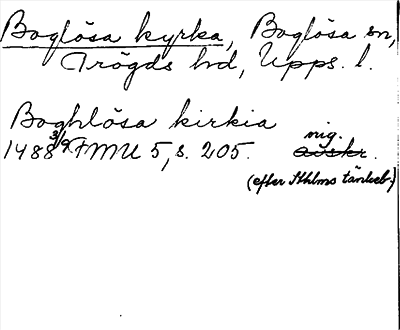 Boglösa kyrka, Boglösa sn,
Trögds hd, Upps. l.
Boghlösa kirkia
1488 3/9 FMU 5, s. 205. avskr. orig.
(efter Sthlms tänkeb.)